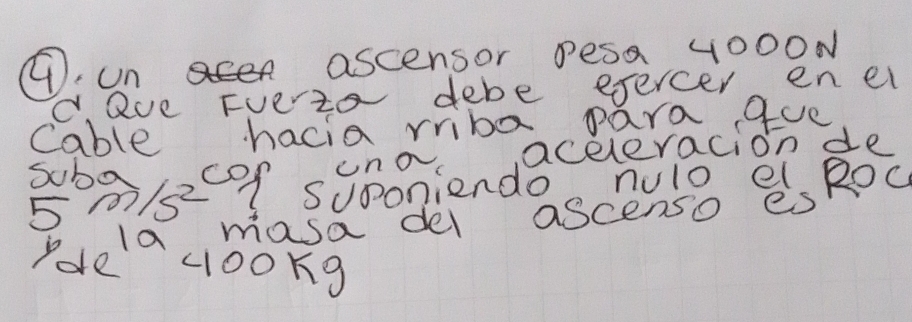 ④. Un ascensor pesa 4000N
d Que Fuerza debe ejercer en el
Cable hacia rriba para que
suba con una aceleración de
5 m/s² suponiendo nulo el ROC
y la masa del ascenso es
de 400Kg